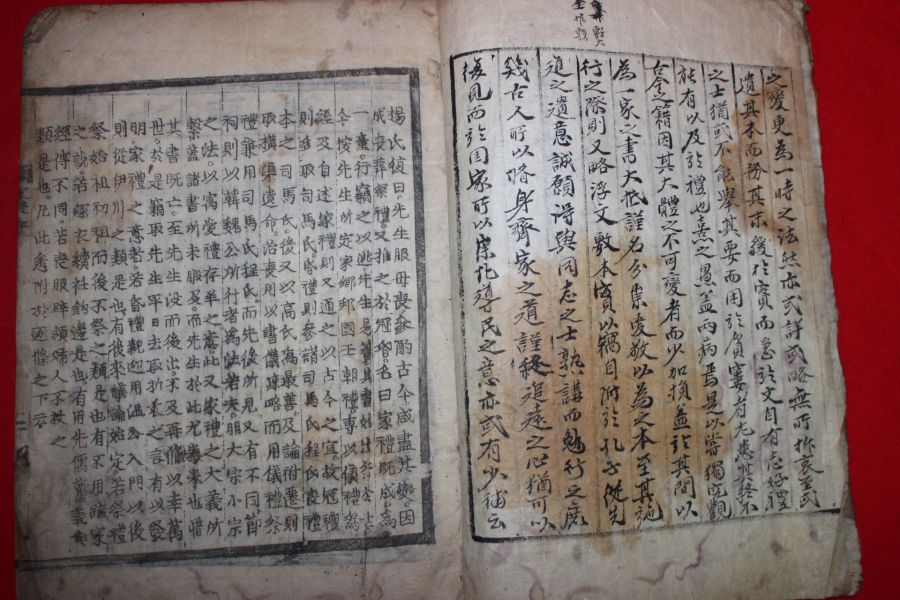 之變更為一時之法然亦或詳或略無所折衷至或
遺其本而務其末緩於實而急於文自有志好禮
之士猶或不能舉其要而困於貧窶者尤患其終不
能有以及於禮也熹之愚盖兩病焉是以嘗獨究觀
古今之籍因其大體之不可變者而少加損益於其間以
為一家之書大抵謹名分崇愛敬以為之本至其施
行之際則又略浮文敷本實以竊自附於孔子從先
進之遺意誠願得與同志之士熟講而勉行之庶
幾古人所以脩身齊家之道謹終追遠之心猶可以
復見而於国家所以崇化道民之意亦或有少補云
楊氏復曰先生服母喪參酌古今咸盡其變因
成喪葬祭禮又推之於冠昏名曰家禮既成為
一童行竊之以逃先生易簀其書始出
今按先生所定家鄉邦國王朝禮專以儀禮為
經及自述家禮則又通之以古今之宜故冠禮
則多取司馬氏昏禮則參諸司馬氏程氏喪禮
本之司馬氏後又以高氏為最善及論祔遷則
取橫渠遺命治喪則以書儀疎略而用儀禮祭
禮兼用司馬氏程氏而先後所見又有不同節
祠則以韓魏公所行者為法若夫明大宗小宗
之法以寓愛禮存羊之意此又家禮之大義所
繫盖諸書所未暇及而先生於此尤拳拳也惜
其書既亡至先生沒而後出不及再脩以幸萬
世於是竊取先生平日去取折衷之言有以發
明家禮之意者若昏禮親迎用溫公入門以後
則從伊川之類是也有後來議論始定若祭禮
祭始祖初祖而後不祭之類是也有不用䟽家
之說若深衣續衽鉤邊是也有用先儒舊義與
經傳不同若喪服辟領婦人不杖之
類是也凡此悉附於逐條之下云